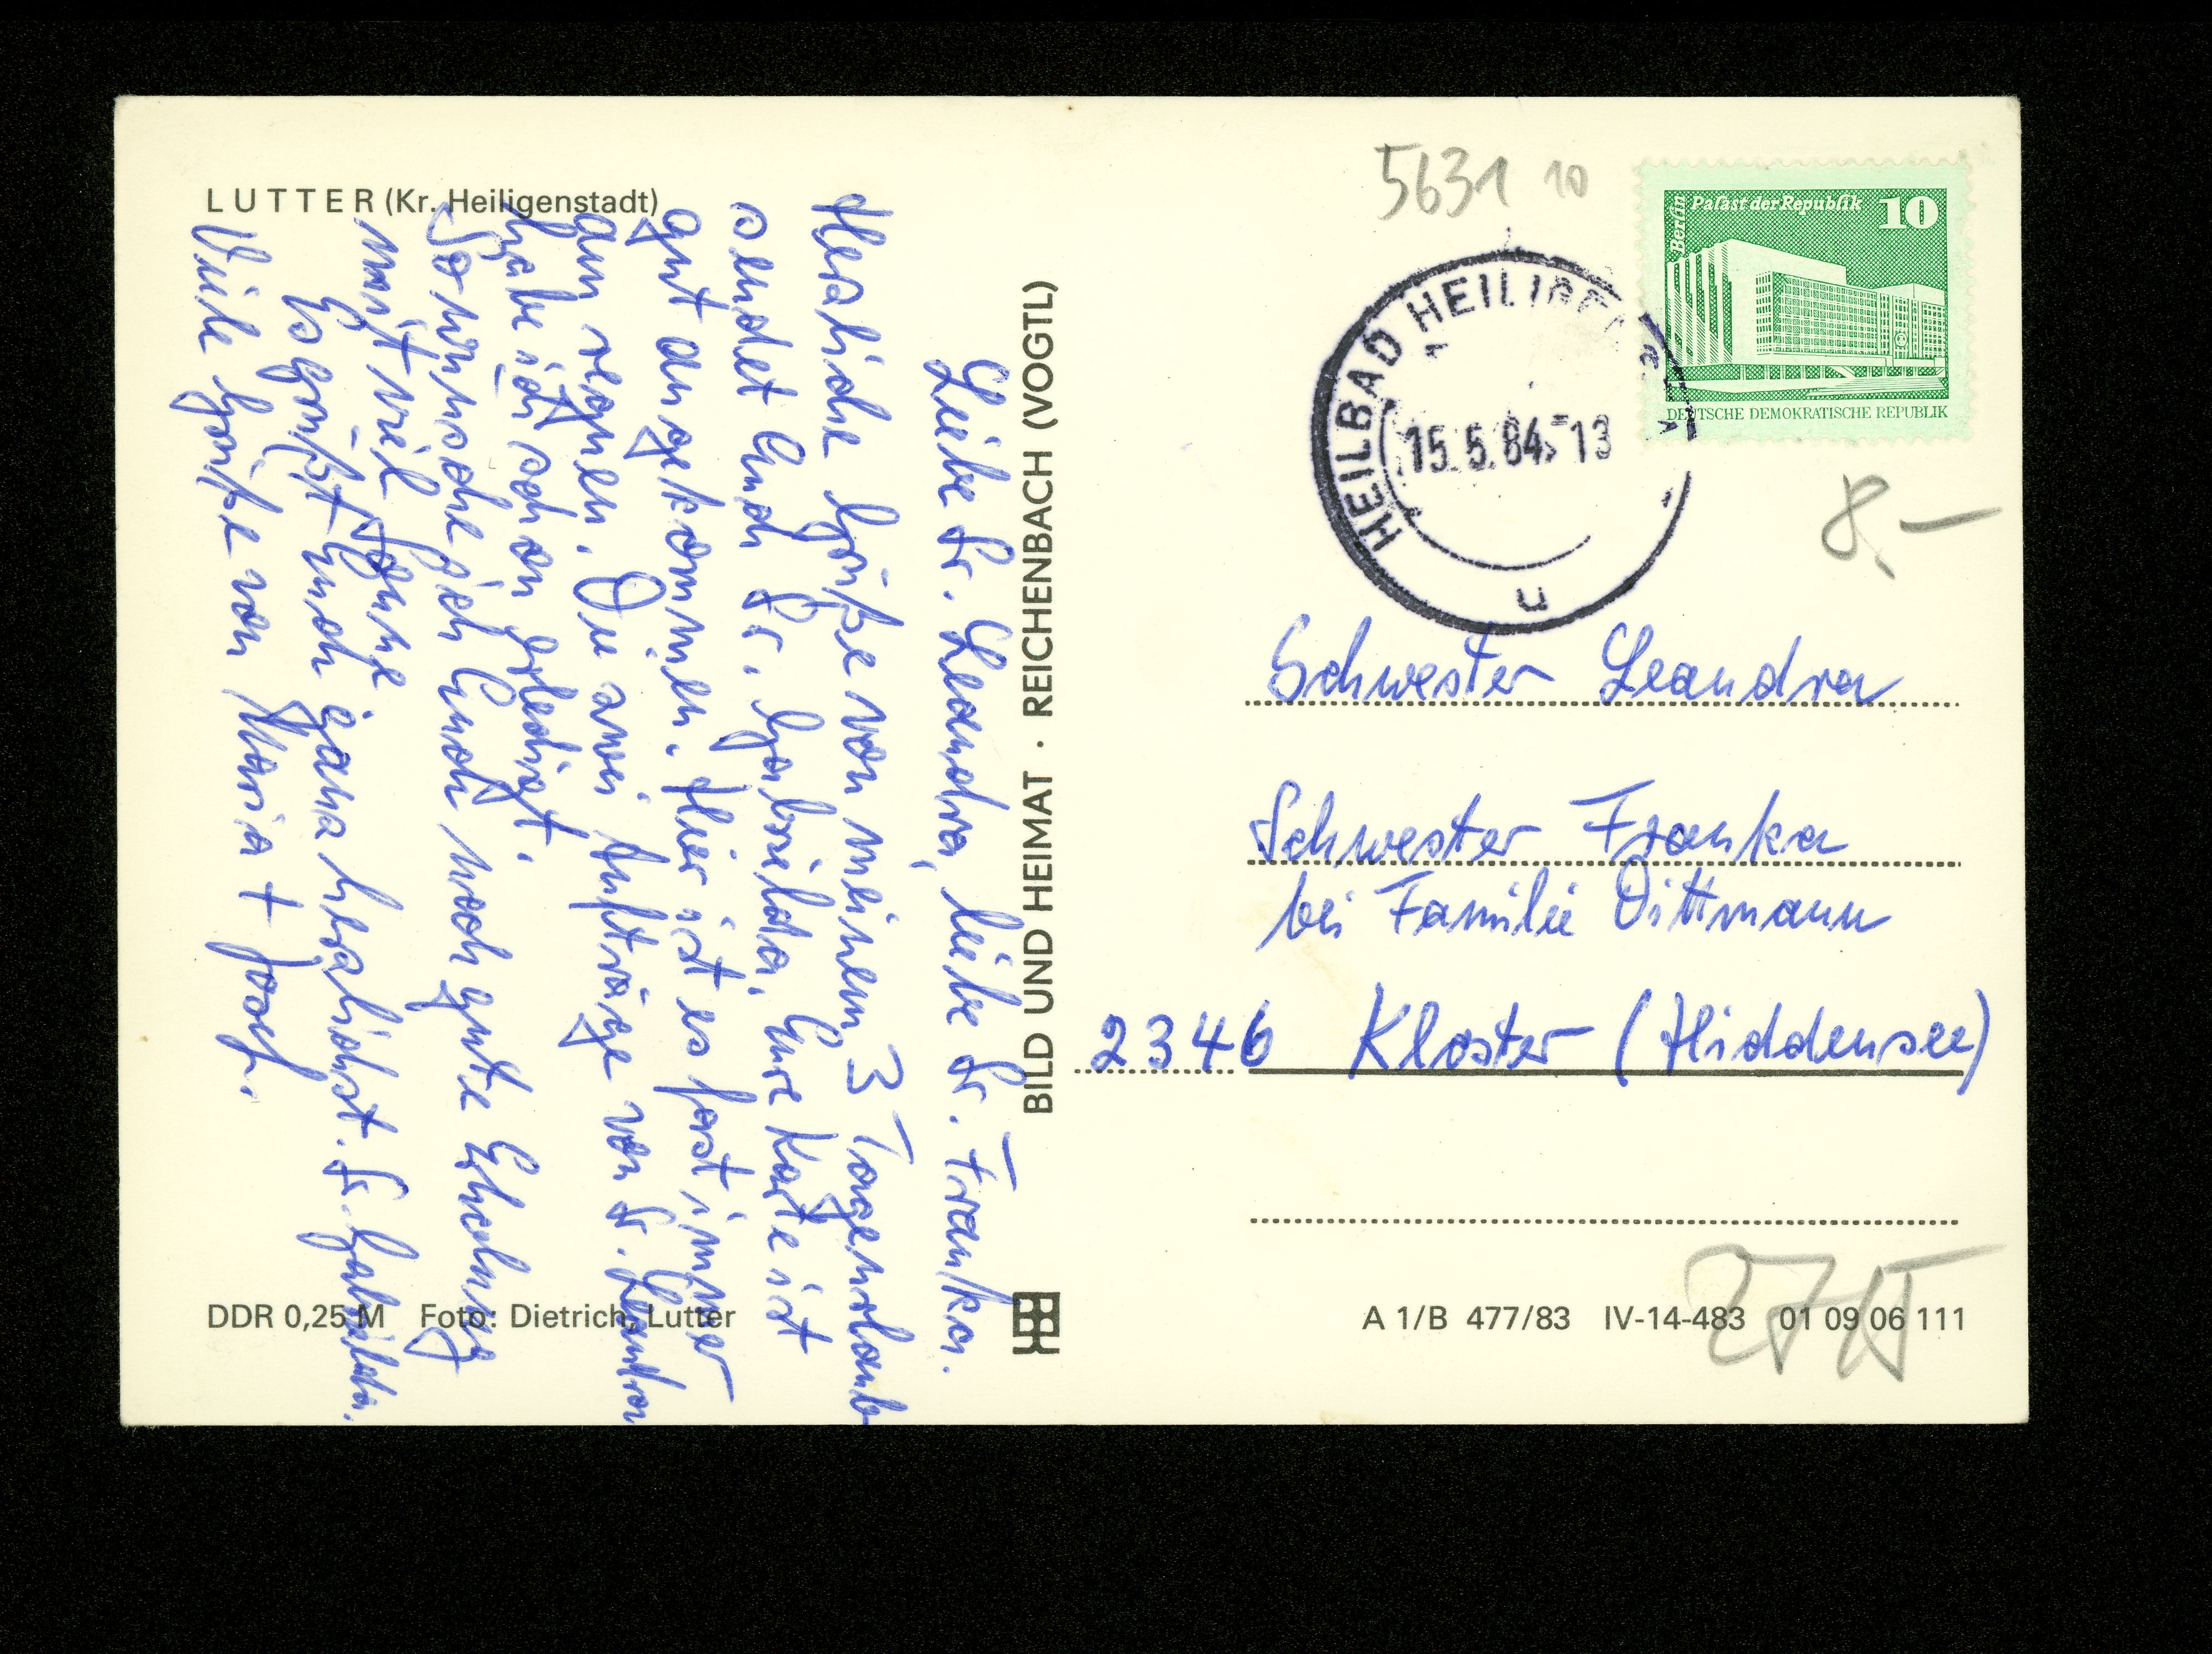 LUTTER (Kr. Heiligenstadt)
Liebe Sr. Leandra, liebe Sr. Franka.
Herzliche Grüße von meinem 3 Tageurlaub
sendet Euch Sr. Gabrielda. Eure Karte ist
gut angekommen. Hier ist es fast immer
am regnen. Die zwei Aufträge von Sr. Leandra
habe ich schon erledigt.
So wünsche ich Euch noch gute Erholung
mit viel Sonne
Es grüßt Euch ganz herzlichst Sr. Gabrielda.
Viele Grüße von Maria + Josef.
DDR 0,25 M Foto: Dietrich, Lutter
BILD UND HEIMAT · REICHENBACH (VOGTL)
5631 10
Berlin
Palast der Republik 10
DEUTSCHE DEMOKRATISCHE REPUBLIK
HEILBAD
15.5.84-13
u
8,—
Schwester Leandra
Schwester Franka
bei Familie Dittmann
2346 Kloster (Hiddensee)
A 1/B 477/83 IV-14-483 01 09 06 111